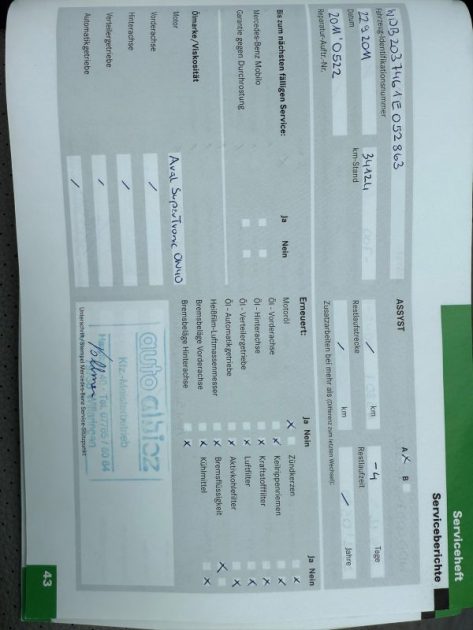 Serviceheft
Serviceberichte
WDB2037461E052863
Fahrzeug-Identifikationsnummer
22.9.2011
Datum
34124
km-Stand
2011/0522
Reparatur-Auftr.-Nr.
ASSYST
A x B
/ km
Restlaufstrecke
-4 Tage
Restlaufzeit
/ km
/ Jahre
Zusatzarbeiten bei mehr als (Differenz zum letzten Wechsel):
Bis zum nächsten fälligen Service:
Ja Nein
Mercedes-Benz Mobilo
Garantie gegen Durchrostung
Ölmarke/Viskosität
Motor
Aral SuperTronic 0W40
Vorderachse /
Hinterachse /
Verteilergetriebe /
Automatikgetriebe /
Erneuert:
Ja Nein
Motoröl x
Öl - Vorderachse x
Öl - Hinterachse x
Öl - Verteilergetriebe x
Öl - Automatikgetriebe x
Heißfilm-Luftmassenmesser x
Bremsbeläge Vorderachse x
Bremsbeläge Hinterachse x
Ja Nein
Zündkerzen x
Keilrippenriemen x
Kraftstofffilter x
Luftfilter x
Aktivkohlefilter x
Bremsflüssigkeit x
Kühlmittel x
auto albicz
Kfz-Meisterbetrieb
Tel. 07705 / 60 84
Unterschrift/Stempel Mercedes-Benz Service-Stützpunkt
43